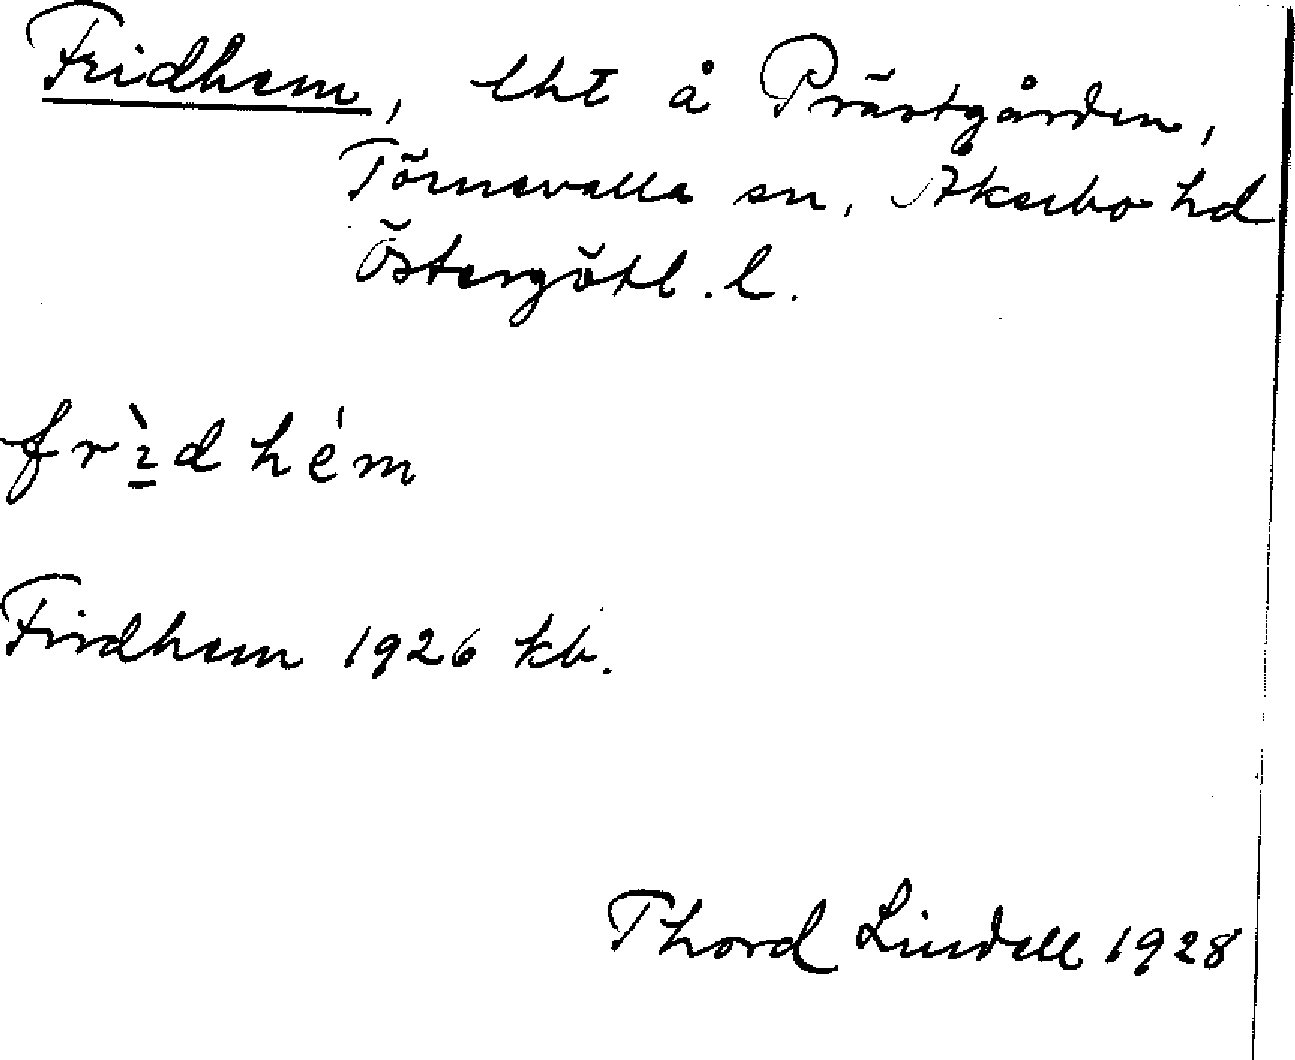 Fridhem, lht å Prästgården,
Törnevalla sn, Åkerbo hd
Östergötl. l.
frìdhém
Fridhem 1926 kb.
Thord Lindell 1928